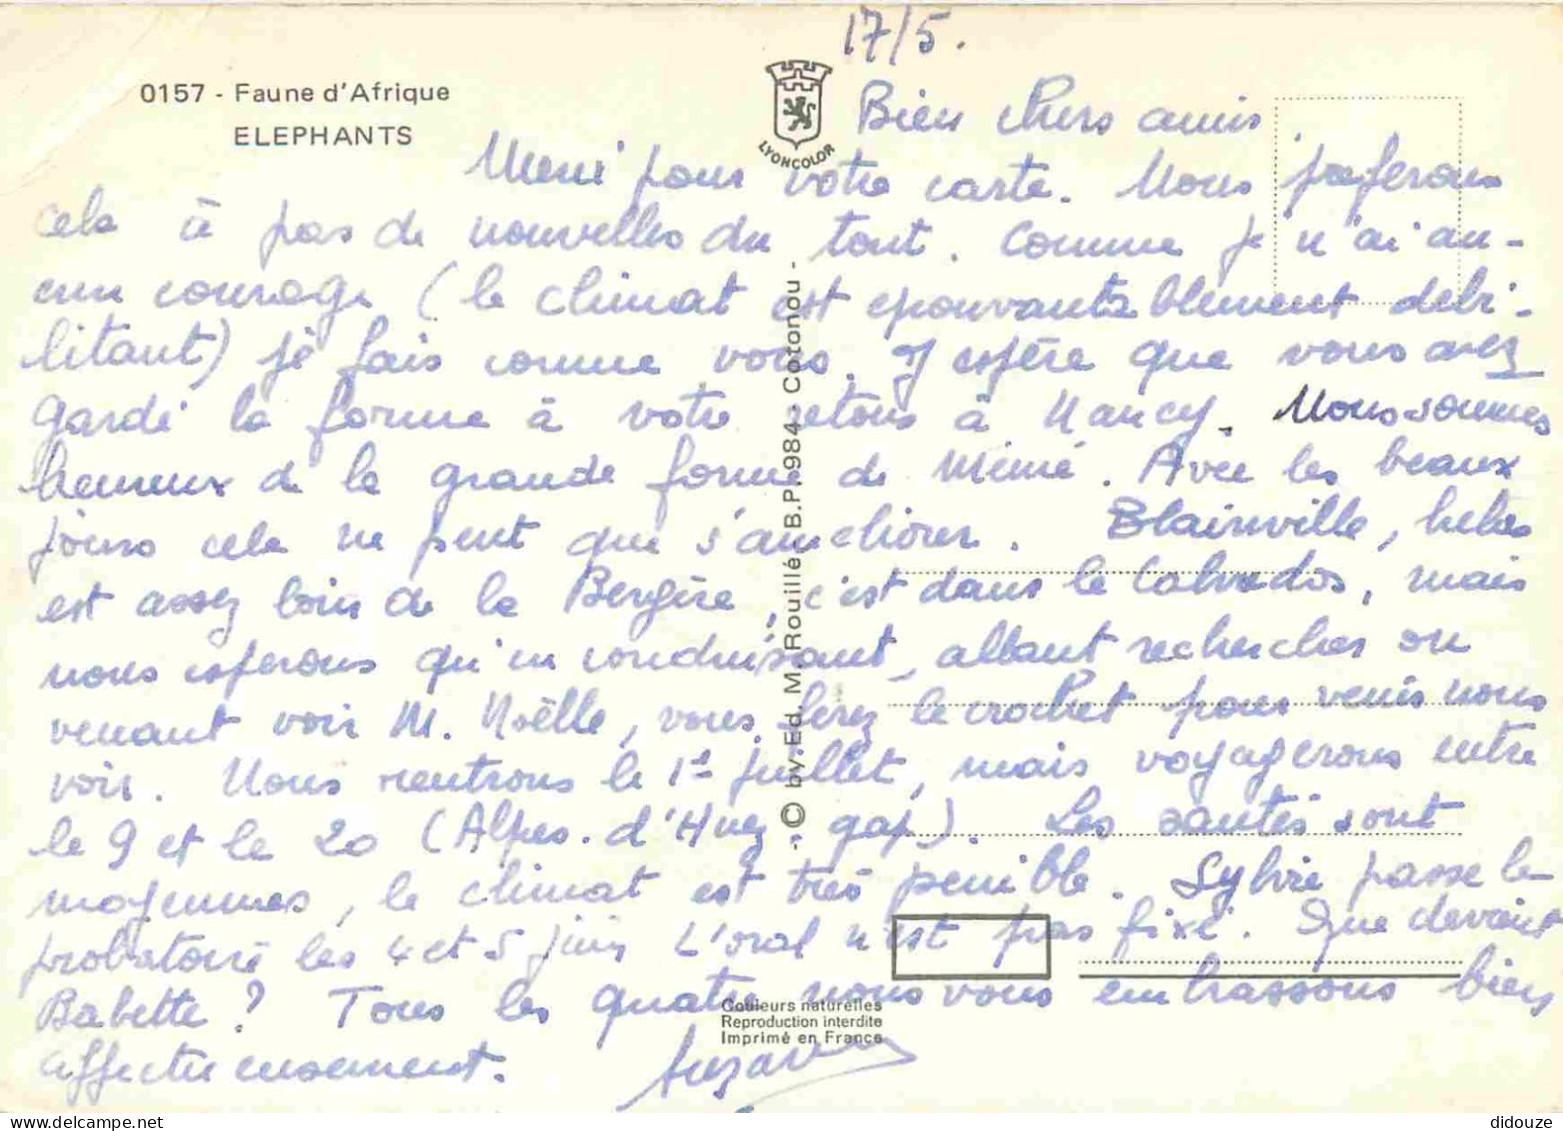 17/5.
0157 - Faune d'Afrique
ELEPHANTS
LYONCOLOR
Bien chers amis
Merci pour votre carte. Nous préferons
cela à pas de nouvelles du tout. Comme je n'ai au-
cun courage (le climat est epouvantablement debi-
litant) je fais comme vous. J'espère que vous avez
gardé la forme à votre retour à Nancy. Nous sommes
heureux de la grande forme de Mémé. Avec les beaux
jours cela ne peut que s'améliorer. Blainville, helas
est assez loin de la Bergère, c'est dans le Calvados, mais
nous esperons qu'en conduisant, allant rechercher ou
venant voir M. Noëlle, vous ferez le crochet pour venir nous
voir. Nous rentrons le 1er juillet, mais voyagerons entre
le 9 et le 20 (Alpes. d'Huez. gap). Les santés sont
moyennes, le climat est très penible. Sylvie passe le
probatoire les 4 et 5 juin L'oral n'est pas fixé. Que devient
Babette ? Tous les quatre nous vous embrassons bien
affectueusement. Suzanne
- © by Ed. M. Rouillé B.P. 984 - Cotonou -
Couleurs naturelles
Reproduction interdite
Imprimé en France
didouze